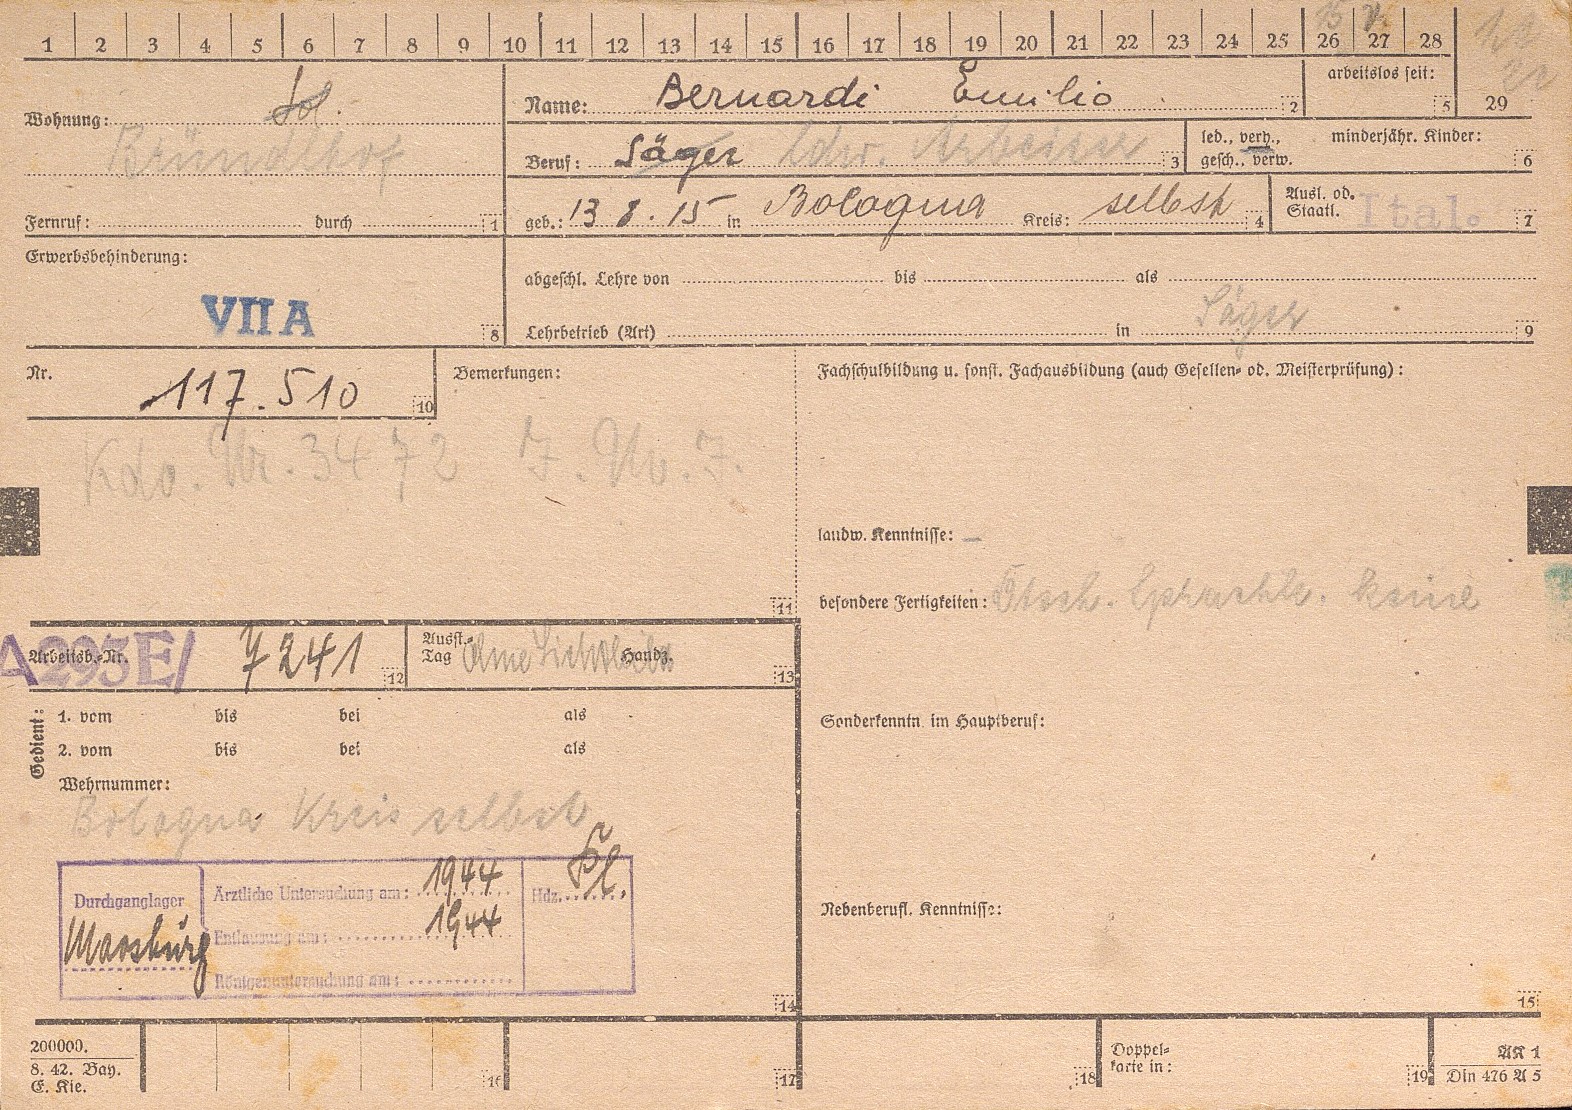 1 2 3 4 5 6 7 8 9 10 11 12 13 14 15 16 17 18 19 20 21 22 23 24 25 26 27 28
15
arbeitslos seit:
5
29
Wohnung: Sol.
Bründlhof
Fernruf: durch 1
Name: Bernardi Emilio 2
Beruf: Säger ldw. Arbeiter 3
led., verh., minderjähr. Kinder:
gesch., verw. 6
geb.: 13 8. 15 in Bologna Kreis: selbst 4
Ausl. od.
Staatl. Ital. 7
Erwerbsbehinderung:
VII A
8
abgeschl. Lehre von bis als
Säger
Lehrbetrieb (Art) in 9
Nr. 117.510 10
Bemerkungen:
Kdo. Nr. 3472
11
Fachschulbildung u. sonst. Fachausbildung (auch Gesellen- od. Meisterprüfung):
landw. Kenntnisse: –
besondere Fertigkeiten: Dtsch. Sprachk. keine
A 293E/
Arbeitsb.-Nr. 7241 12
Ausst.-
Tag Ohne Lichtbild Handz. 13
Gedient:
1. vom bis bei als
2. vom bis bei als
Wehrnummer:
Bologna Kreis selbst
Durchganglager
Moosburg
Ärztliche Untersuchung am: 1944
Entlausung am: 1944
Röntgenuntersuchung am:
Hdz.
14
Sonderkenntn. im Hauptberuf:
Nebenberufl. Kenntnisse:
15
200000.
8. 42. Bay.
E. Kie.
16
17
18
Doppel-
karte in:
19
AK 1
Din 476 A 5